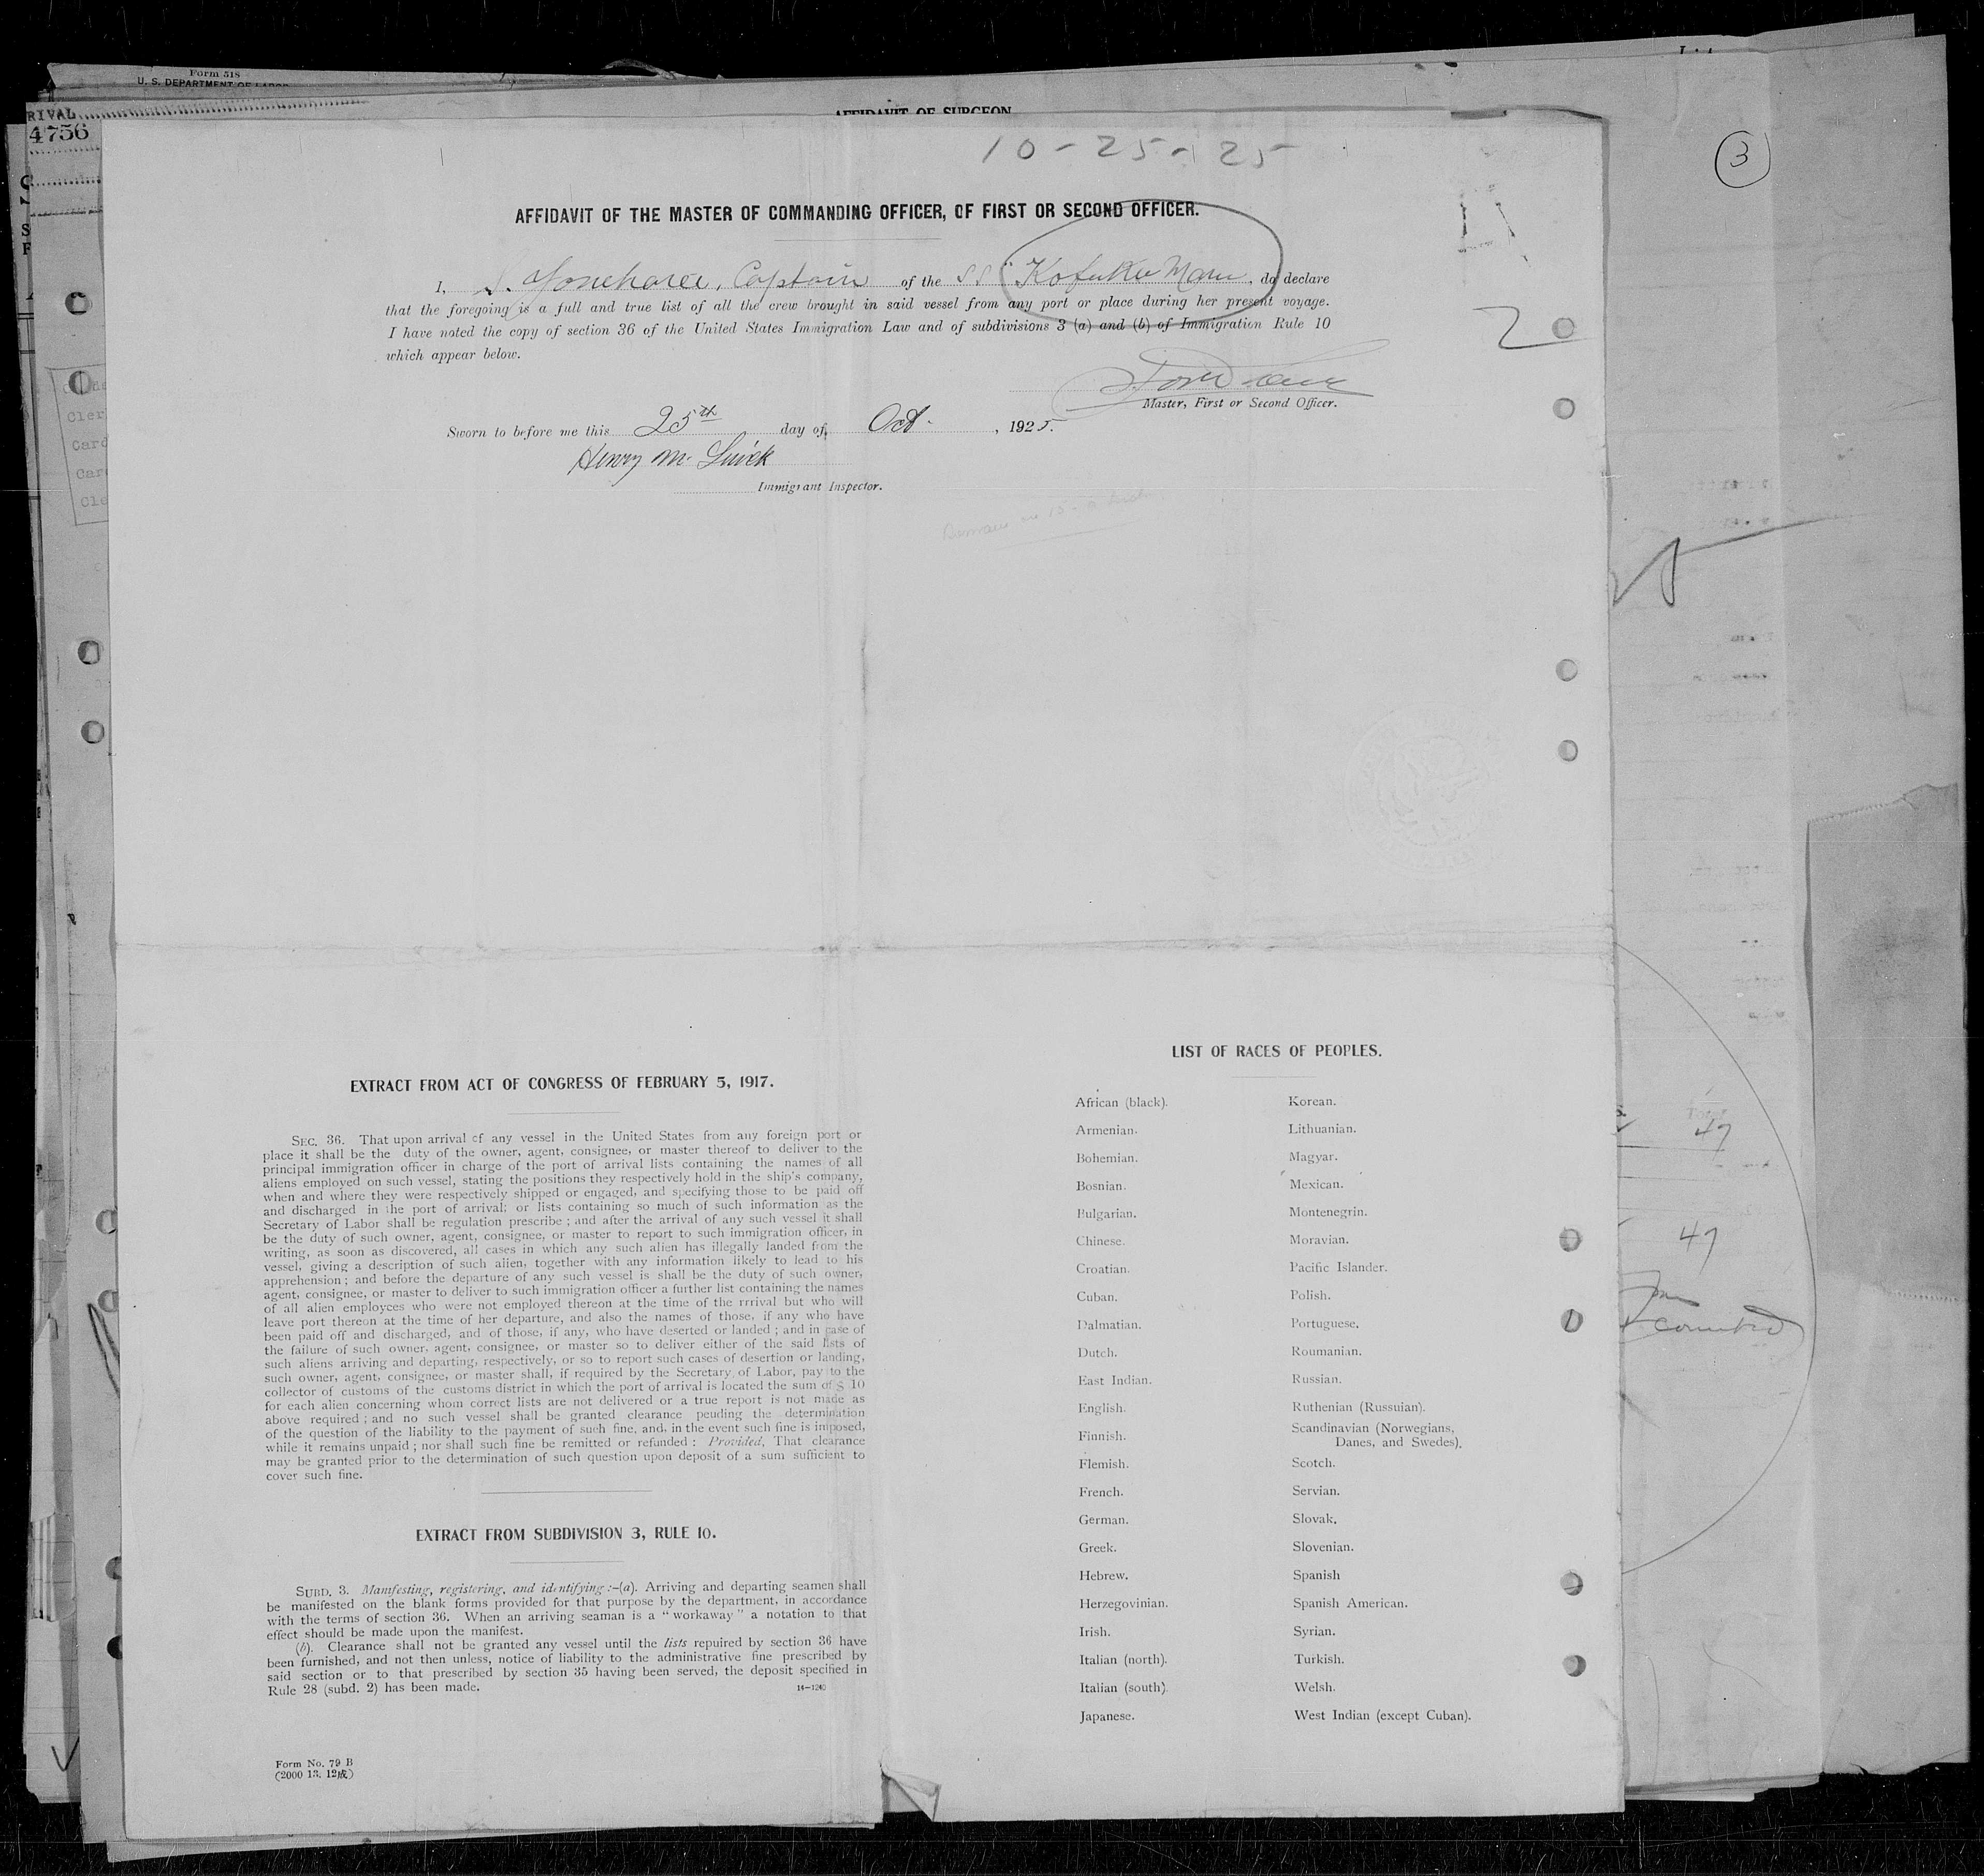 Form 518
U. S. DEPARTMENT OF LABOR
RIVAL
4756
AFFIDAVIT OF SURGEON
10-25-25
3
AFFIDAVIT OF THE MASTER OF COMMANDING OFFICER, OF FIRST OR SECOND OFFICER.
I, S. Yonehara, Captain of the SS "Kofuku Maru, do declare
that the foregoing is a full and true list of all the crew brought in said vessel from any port or place during her present voyage.
I have noted the copy of section 36 of the United States Immigration Law and of subdivisions 3 (a) and (b) of Immigration Rule 10
which appear below.
2
Master, First or Second Officer.
Sworn to before me this 25th day of, Oct. , 1925.
Henry M.
Immigrant Inspector.
Cler
Card
Car
Cle
EXTRACT FROM ACT OF CONGRESS OF FEBRUARY 5, 1917.
SEC. 36. That upon arrival of any vessel in the United States from any foreign port or
place it shall be the duty of the owner, agent, consignee, or master thereof to deliver to the
principal immigration officer in charge of the port of arrival lists containing the names of all
aliens employed on such vessel, stating the positions they respectively hold in the ship's company,
when and where they were respectively shipped or engaged, and specifying those to be paid off
and discharged in the port of arrival; or lists containing so much of such information as the
Secretary of Labor shall be regulation prescribe ; and after the arrival of any such vessel it shall
be the duty of such owner, agent, consignee, or master to report to such immigration officer, in
writing, as soon as discovered, all cases in which any such alien has illegally landed from the
vessel, giving a description of such alien, together with any information likely to lead to his
apprehension ; and before the departure of any such vessel is shall be the duty of such owner,
agent, consignee, or master to deliver to such immigration officer a further list containing the names
of all alien employees who were not employed thereon at the time of the rrrival but who will
leave port thereon at the time of her departure, and also the names of those, if any who have
been paid off and discharged, and of those, if any, who have deserted or landed ; and in case of
the failure of such owner, agent, consignee, or master so to deliver either of the said lists of
such aliens arriving and departing, respectively, or so to report such cases of desertion or landing,
such owner, agent, consignee, or master shall, if required by the Secretary of Labor, pay to the
collector of customs of the customs district in which the port of arrival is located the sum of $ 10
for each alien concerning whom correct lists are not delivered or a true report is not made as
above required ; and no such vessel shall be granted clearance peuding the determination
of the question of the liability to the payment of such fine, and, in the event such fine is imposed,
while it remains unpaid ; nor shall such fine be remitted or refunded : Provided, That clearance
may be granted prior to the determination of such question upon deposit of a sum sufficient to
cover such fine.
EXTRACT FROM SUBDIVISION 3, RULE 10.
SUBD. 3. Manifesting, registering, and identifying :-(a). Arriving and departing seamen shall
be manifested on the blank forms provided for that purpose by the department, in accordance
with the terms of section 36. When an arriving seaman is a "workaway" a notation to that
effect should be made upon the manifest.
(b). Clearance shall not be granted any vessel until the lists repuired by section 36 have
been furnished, and not then unless, notice of liability to the administrative fine prescribed by
said section or to that prescribed by section 35 having been served, the deposit specified in
Rule 28 (subd. 2) has been made.
14-1240
Form No. 79 B
(2000 13. 12成)
LIST OF RACES OF PEOPLES.
African (black).
Armenian.
Bohemian.
Bosnian.
Bulgarian.
Chinese.
Croatian.
Cuban.
Dalmatian.
Dutch.
East Indian.
English.
Finnish.
Flemish.
French.
German.
Greek.
Hebrew.
Herzegovinian.
Irish.
Italian (north).
Italian (south).
Japanese.
Korean.
Lithuanian.
Magyar.
Mexican.
Montenegrin.
Moravian.
Pacific Islander.
Polish.
Portuguese.
Roumanian.
Russian.
Ruthenian (Russuian).
Scandinavian (Norwegians,
Danes, and Swedes).
Scotch.
Servian.
Slovak.
Slovenian.
Spanish
Spanish American.
Syrian.
Turkish.
Welsh.
West Indian (except Cuban).
Total
47
47
counted